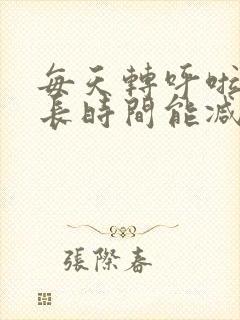 每天轉呼啦
長時間能減
張際春